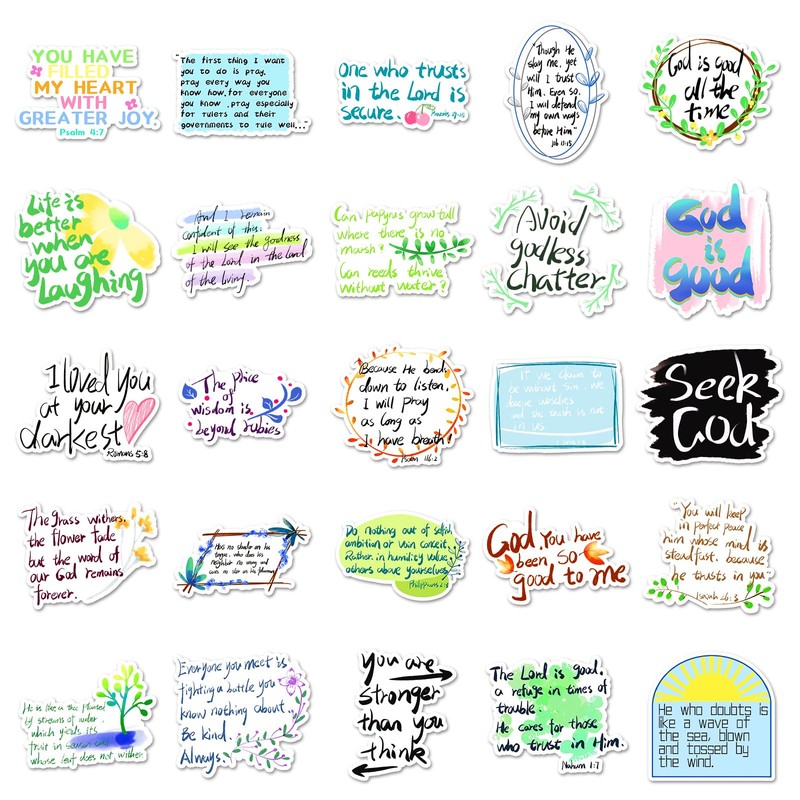 YOU HAVE
FILLED
MY HEART
WITH
GREATER JOY.
Psalm 4:7
The first thing I want
you to do is pray,
pray every way you
know how, for everyone
you know .pray especially
for rulers and their
governments to rule well..."
One who trusts
in the Lord is
secure.
"Though He
slay me, yet
will I trust
Him. Even so,
I will defend
my own ways
before Him"
Job 13:15
God is good
all the
time
Life is
better
when
you are
Laughing
And I remain
confident of this:
I will see the goodness
of the Lord in the land
of the living.
Can papyrus grow tall
where there is no
marsh?
Can reeds thrive
without water?
Avoid
godless
chatter
God
is
good
I loved you
at your
darkest
Romans 5:8
The price
of
wisdom is
beyond rubies
Because He bends
down to listen,
I will pray
as long as
I have breath!
Psalm 116:2
If we claim to
be without sin, we
ourselves
and the truth is not
in us
Seek
God
The grass withers,
the flower fade
but the word of
our God remains
forever.
has no slander on his
tongue, who does his
neighbor no wrong and
casts no slur on his
Do nothing out of selfish
ambition or vain conceit.
Rather, in humility value
others above yourselves
Philippians 2:3
God, You have
been so
good to me
"You will keep
in perfect peace
him whose mind is
steadfast, because
he trusts in you
Isaiah 26:3
He is like a tree planted
by streams of water,
which yields its
fruit in season and
whose leaf does not wither.
Everyone you meet is
fighting a battle you
know nothing about..
Be kind.
Always.
you are
stronger
than you
think
The Lord is good,
a refuge in times of
trouble.
He cares for those
who trust in Him.
Nahum 1:7
He who doubts is
like a wave of
the sea, blown
and tossed by
the wind.